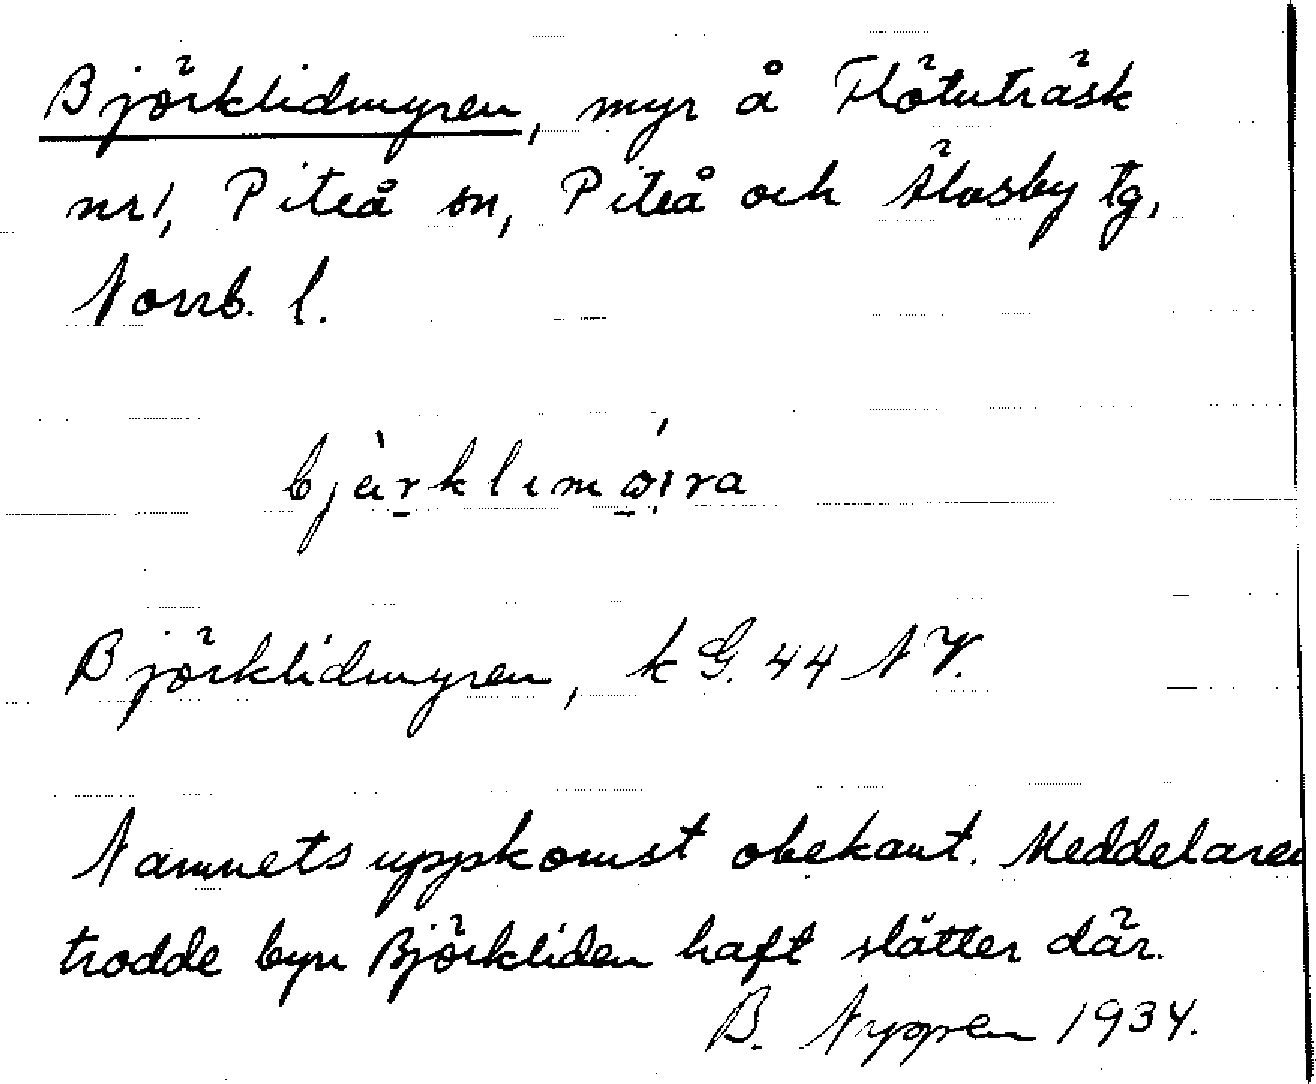 Björklidmyren, myr å Flötuträsk
nr 1, Piteå sn, Piteå och Älvsby tg,
Norrb. l.
bjä̀rklimǿıra
Björklidmyren, k G. 44 NV.
Namnets uppkomst obekant. Meddelaren
trodde byn Björkliden haft slåtter där.
B. Nygren 1934.